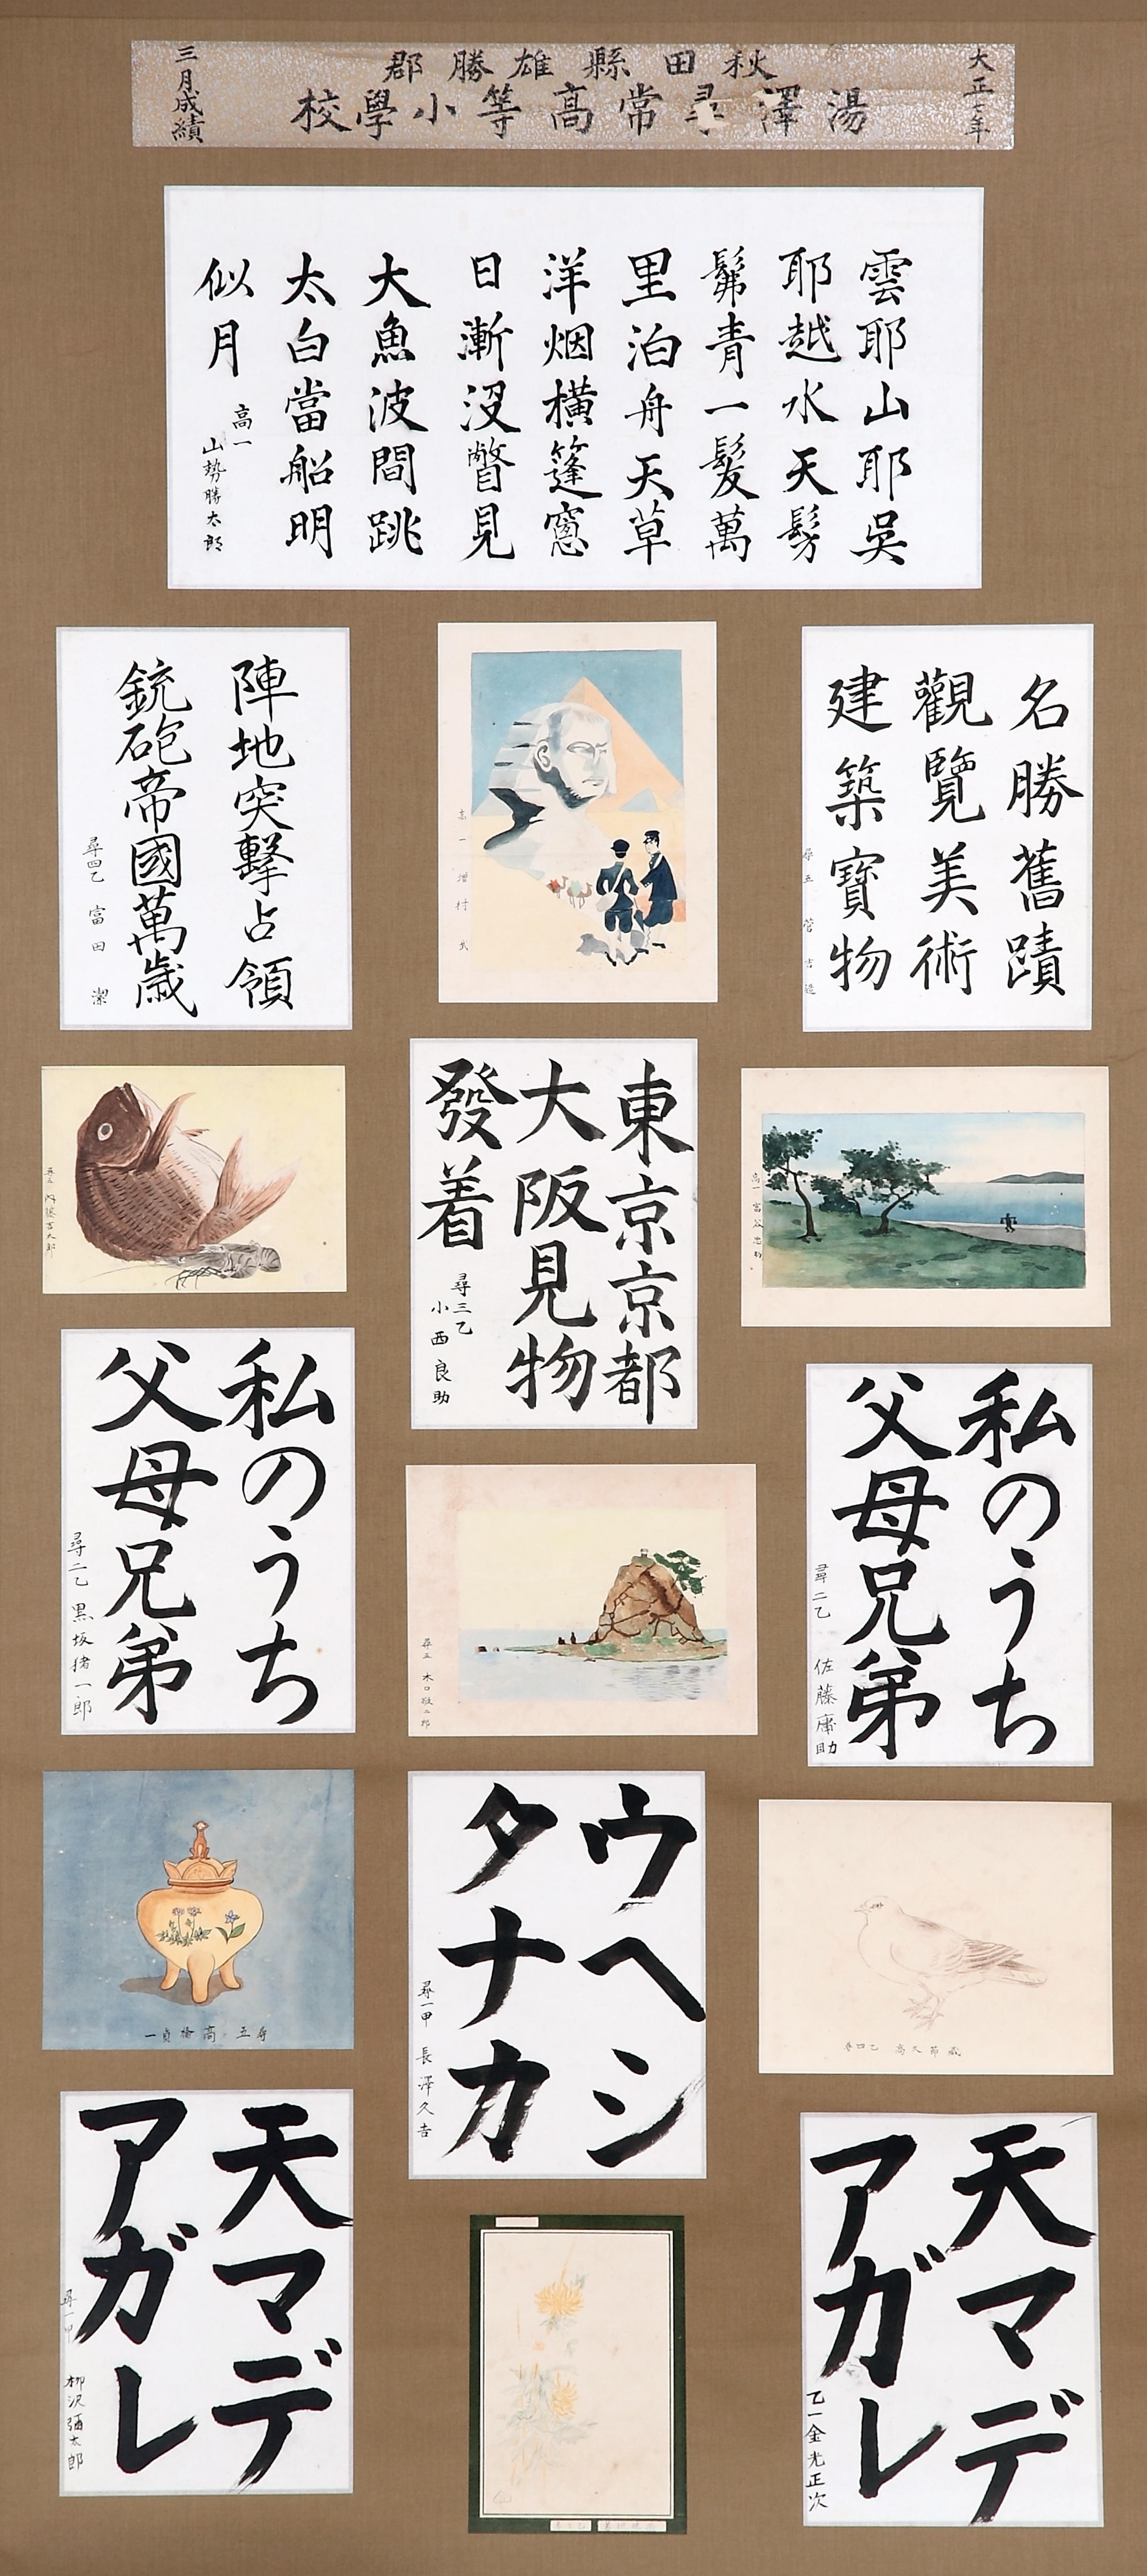 大正七年
秋田縣雄勝郡
湯澤尋常高等小學校
三月成績
雲耶山耶吳
耶越水天髣
髴青一髮萬
里泊舟天草
洋烟橫篷窓
日漸沒瞥見
大魚波間跳
太白當船明
似月
高一
山勢勝太郎
名勝舊蹟
觀覽美術
建築寶物
尋五 菅 吉造
高一 増村
陣地突擊占領
銃砲帝國萬歳
尋四乙 富田 潔
高一 富谷忠
東京京都
大阪見物
發着
尋三乙
小西良助
尋五 内藤吉太郎
私のうち
父母兄弟
尋二乙 佐藤庸助
尋五 木口 二郎
私のうち
父母兄弟
尋二乙 黒坂猪一郎
尋四乙 高久節蔵
ウヘシ
タナカ
尋一甲 長澤久吉
尋五 高 貞一
天マデ
アガレ
乙一金光正次
天マデ
アガレ
尋一甲 柳沢彌太郎